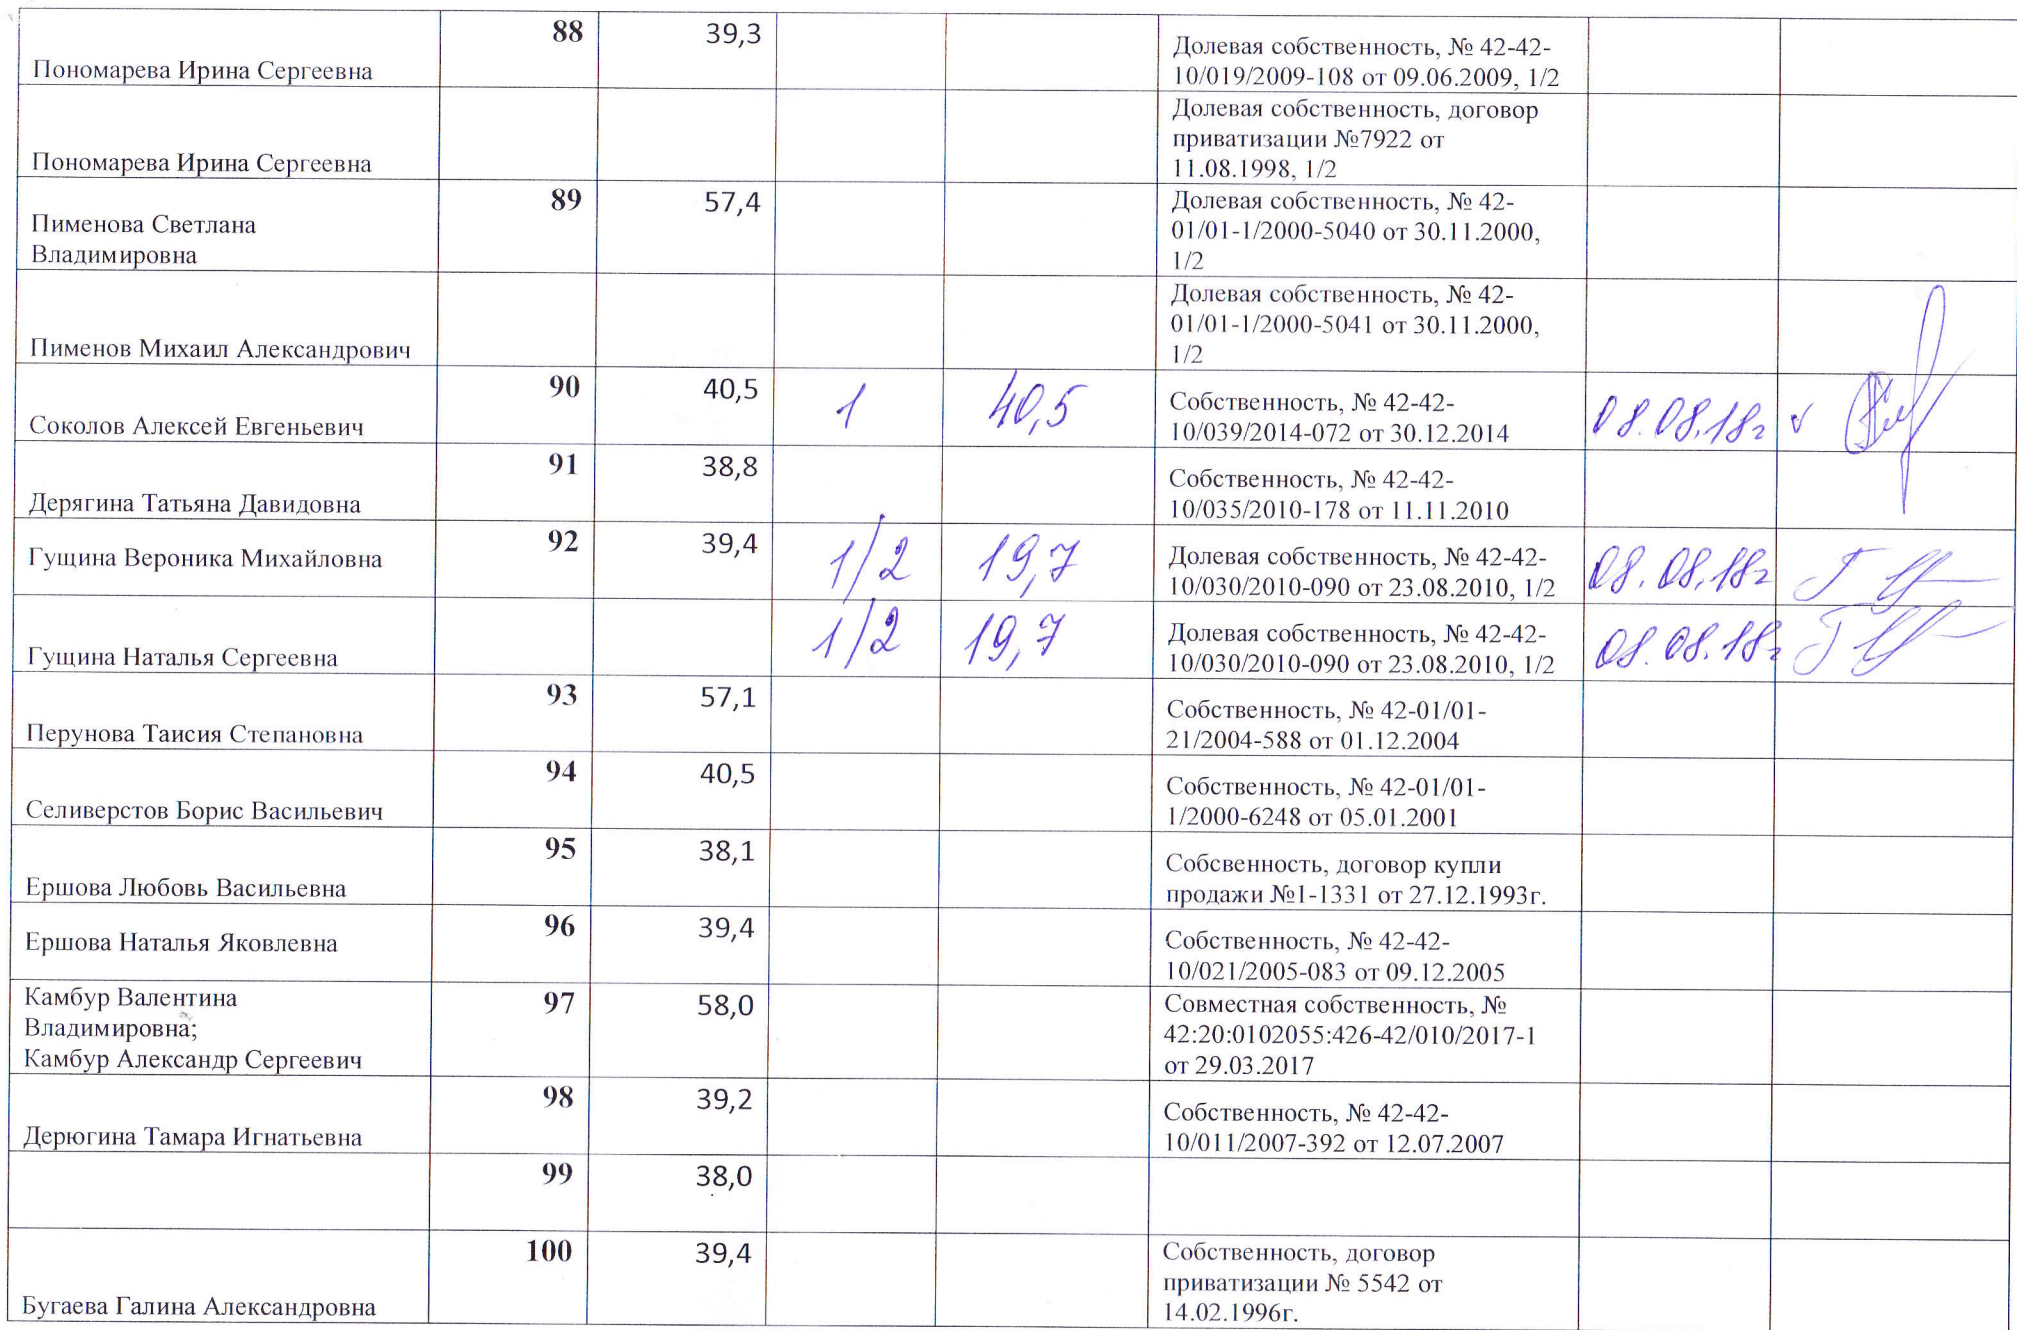 88 39,3
Пономарева Ирина Сергеевна
Долевая собственность, № 42-42-
10/019/2009-108 от 09.06.2009, 1/2
Пономарева Ирина Сергеевна
Долевая собственность, договор
приватизации №7922 от
11.08.1998, 1/2
89 57,4
Пименова Светлана
Владимировна
Долевая собственность, № 42-
01/01-1/2000-5040 от 30.11.2000,
1/2
Пименов Михаил Александрович
Долевая собственность, № 42-
01/01-1/2000-5041 от 30.11.2000,
1/2
90 40,5
Соколов Алексей Евгеньевич
1 40,5
Собственность, № 42-42-
10/039/2014-072 от 30.12.2014
08.08.18г
91 38,8
Дерягина Татьяна Давидовна
Собственность, № 42-42-
10/035/2010-178 от 11.11.2010
92 39,4
Гущина Вероника Михайловна
1/2 19,7
Долевая собственность, № 42-42-
10/030/2010-090 от 23.08.2010, 1/2
08.08.18г
Гущина Наталья Сергеевна
1/2 19,7
Долевая собственность, № 42-42-
10/030/2010-090 от 23.08.2010, 1/2
08.08.18г
93 57,1
Перунова Таисия Степановна
Собственность, № 42-01/01-
21/2004-588 от 01.12.2004
94 40,5
Селиверстов Борис Васильевич
Собственность, № 42-01/01-
1/2000-6248 от 05.01.2001
95 38,1
Ершова Любовь Васильевна
Собсвенность, договор купли
продажи №1-1331 от 27.12.1993г.
96 39,4
Ершова Наталья Яковлевна
Собственность, № 42-42-
10/021/2005-083 от 09.12.2005
97 58,0
Камбур Валентина
Владимировна;
Камбур Александр Сергеевич
Совместная собственность, №
42:20:0102055:426-42/010/2017-1
от 29.03.2017
98 39,2
Дерюгина Тамара Игнатьевна
Собственность, № 42-42-
10/011/2007-392 от 12.07.2007
99 38,0
100 39,4
Бугаева Галина Александровна
Собственность, договор
приватизации № 5542 от
14.02.1996г.